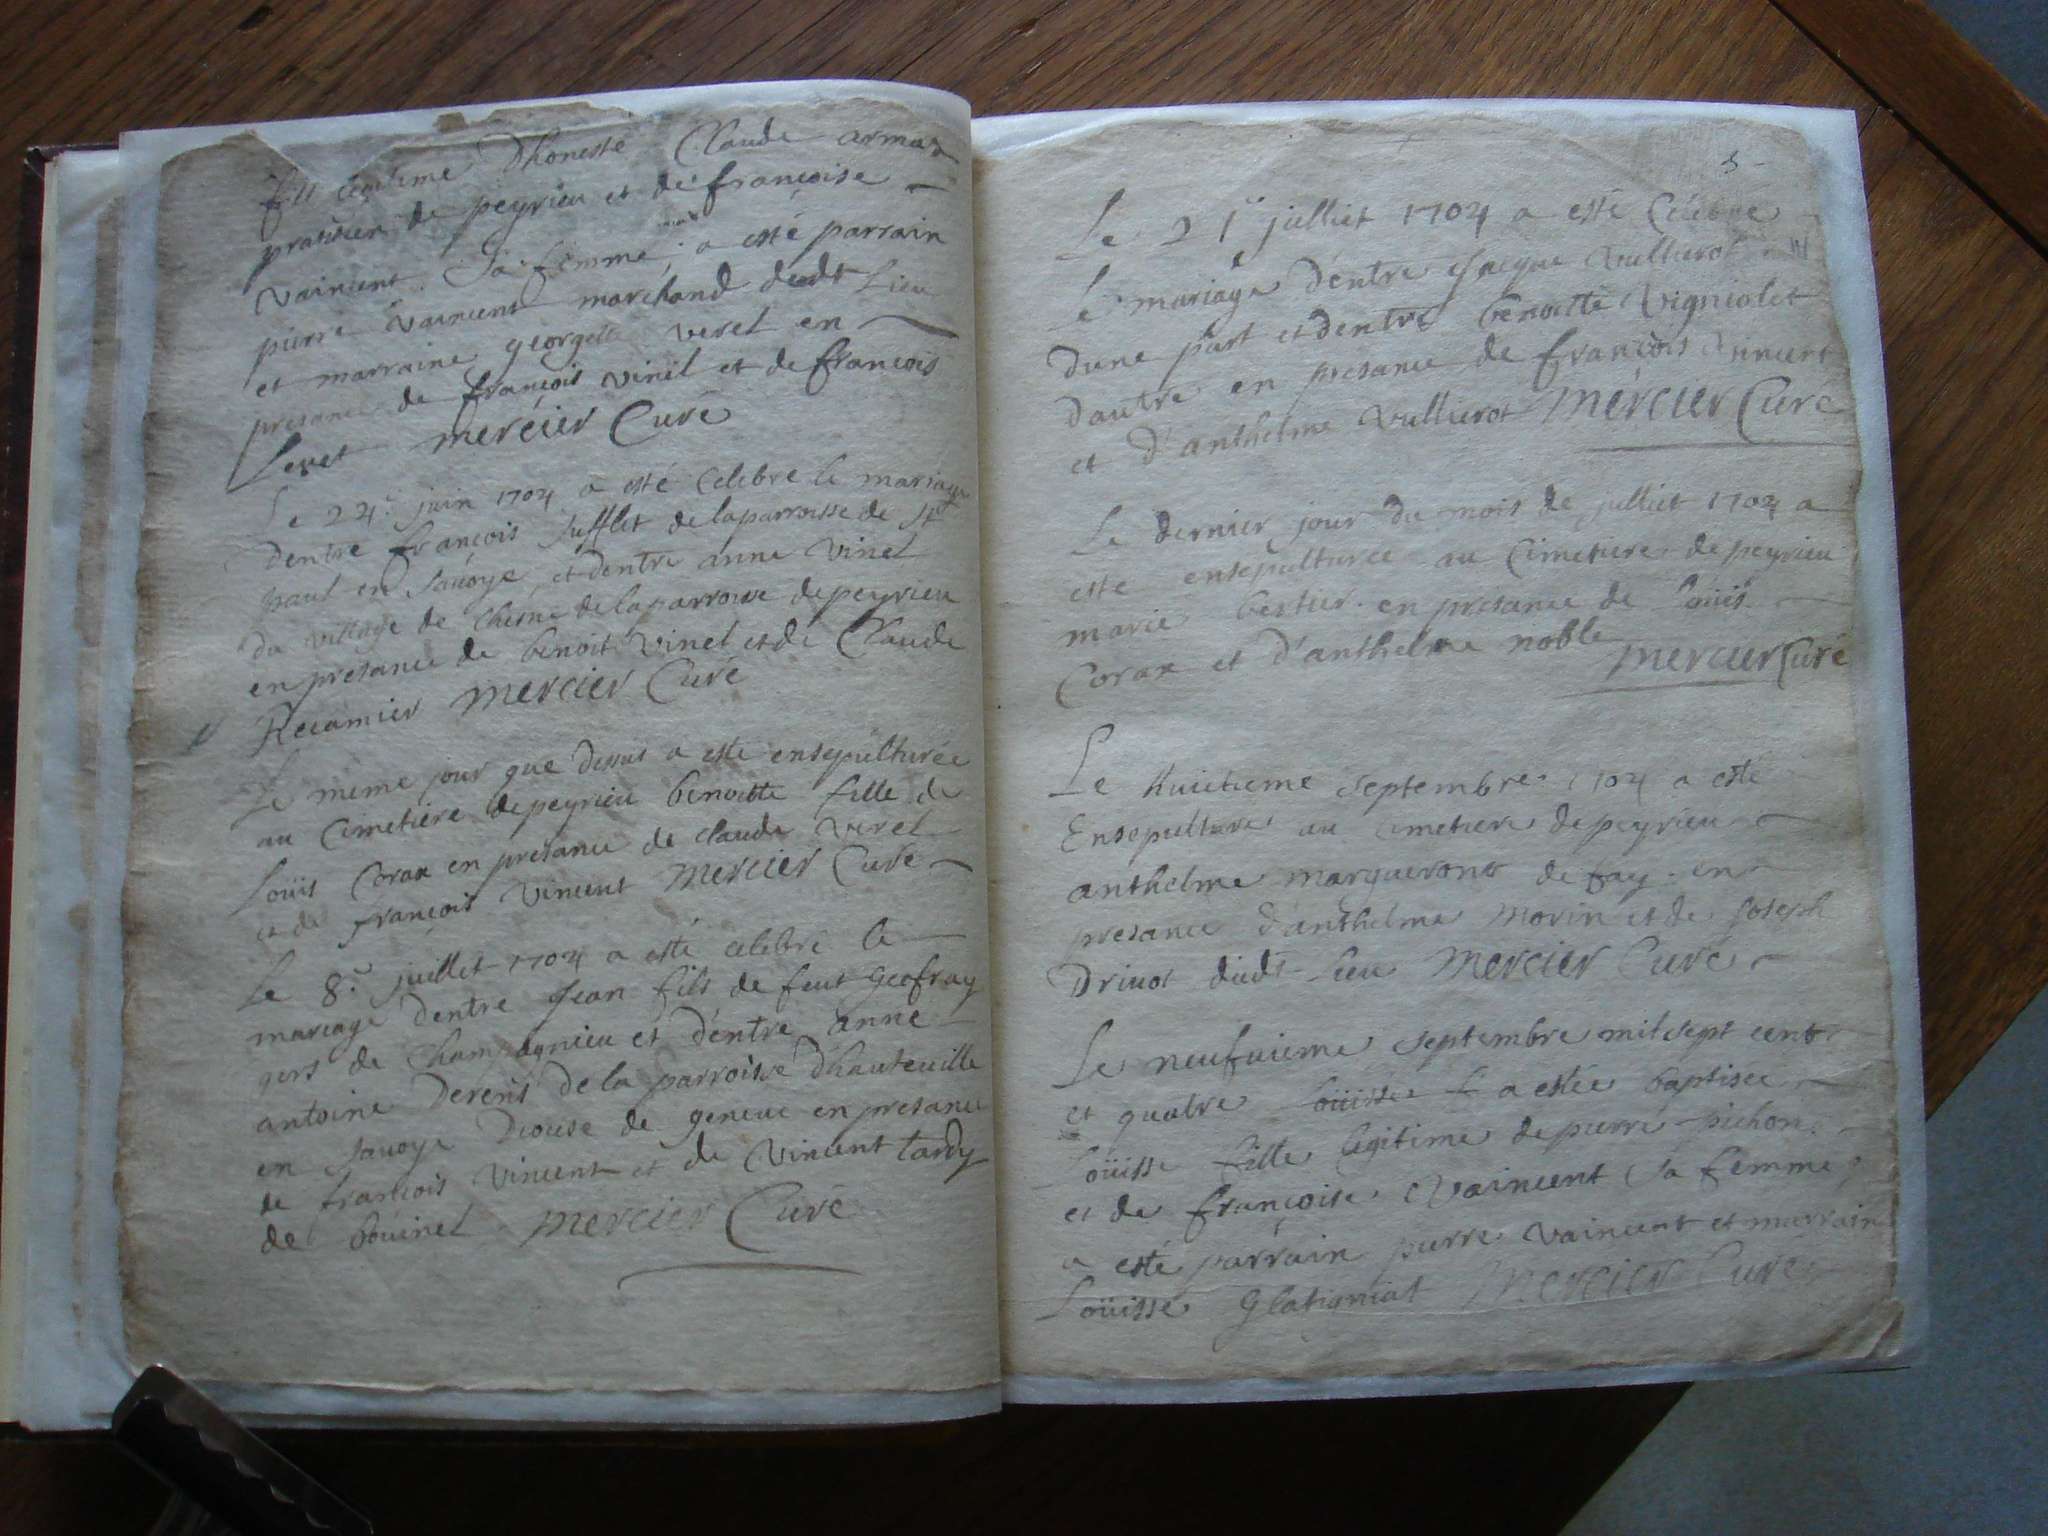 fils legitime d'honeste Claude armax
pratitien de peyrieu et de françoise
vaincent sa femme, a esté parrain
pierre vaincent marchand dudt Lieu
et marraine georgette verel en
presance de françois vinel et de françois
Levet mercier Curé
Le 24e juin 1704 a esté Celebré le mariage
dentre françois sufflet de laparroisse de St
paul en savoye, et dentre anne vinel
du village de Chesne de laparroisse depeyrieu
en presance de benoit vinel et de Claude
Recamier mercier Curé
Le meme jour que dessus a esté ensepulturée
au Cimetiere depeyrieu benoitte fille de
Loüis Corax en presance de claude verel
et de françois vincent mercier Curé
Le 8e juillet 1704 a esté celebré le
mariage dentre Jean fils de feut Geofray
gers de Champagnieu et d'entre anne
antoine derens de la parroisse d'hauteville
en savoye diocese de geneve en presance
de françois vincent et de vincent tardy
de bouinel mercier Curé
5
Le 21e julliet 1704 a esté Celebré
Le mariage d'entre Jacque vullierot
dune part et dentre benoitte vigniolet
dautre en presance de françois vincent
et d'anthelme vullierot mercier Curé
Le dernier jour du mois de julliet 1704 a
esté ensepulturée au Cimetiere de peyrieu
marie bertier en presance de Loüis
Corax et d'anthelme noble mercier Curé
Le huictieme septembre 1704 a esté
Ensepulture au cimetiere de peyrieu
anthelme marqueront de fay en
presance d'anthelme morin et de Joseph
Drivot dudt Lieu mercier Curé
Le neufvieme septembre mil sept cent
et quatre Loüisse a estée baptisée
Loüisse fille legitime de pierre pichon
et de françoise vaincent sa femme,
a esté parrain pierre vaincent et marrain
Loüisse Glatigniat mercier Curé